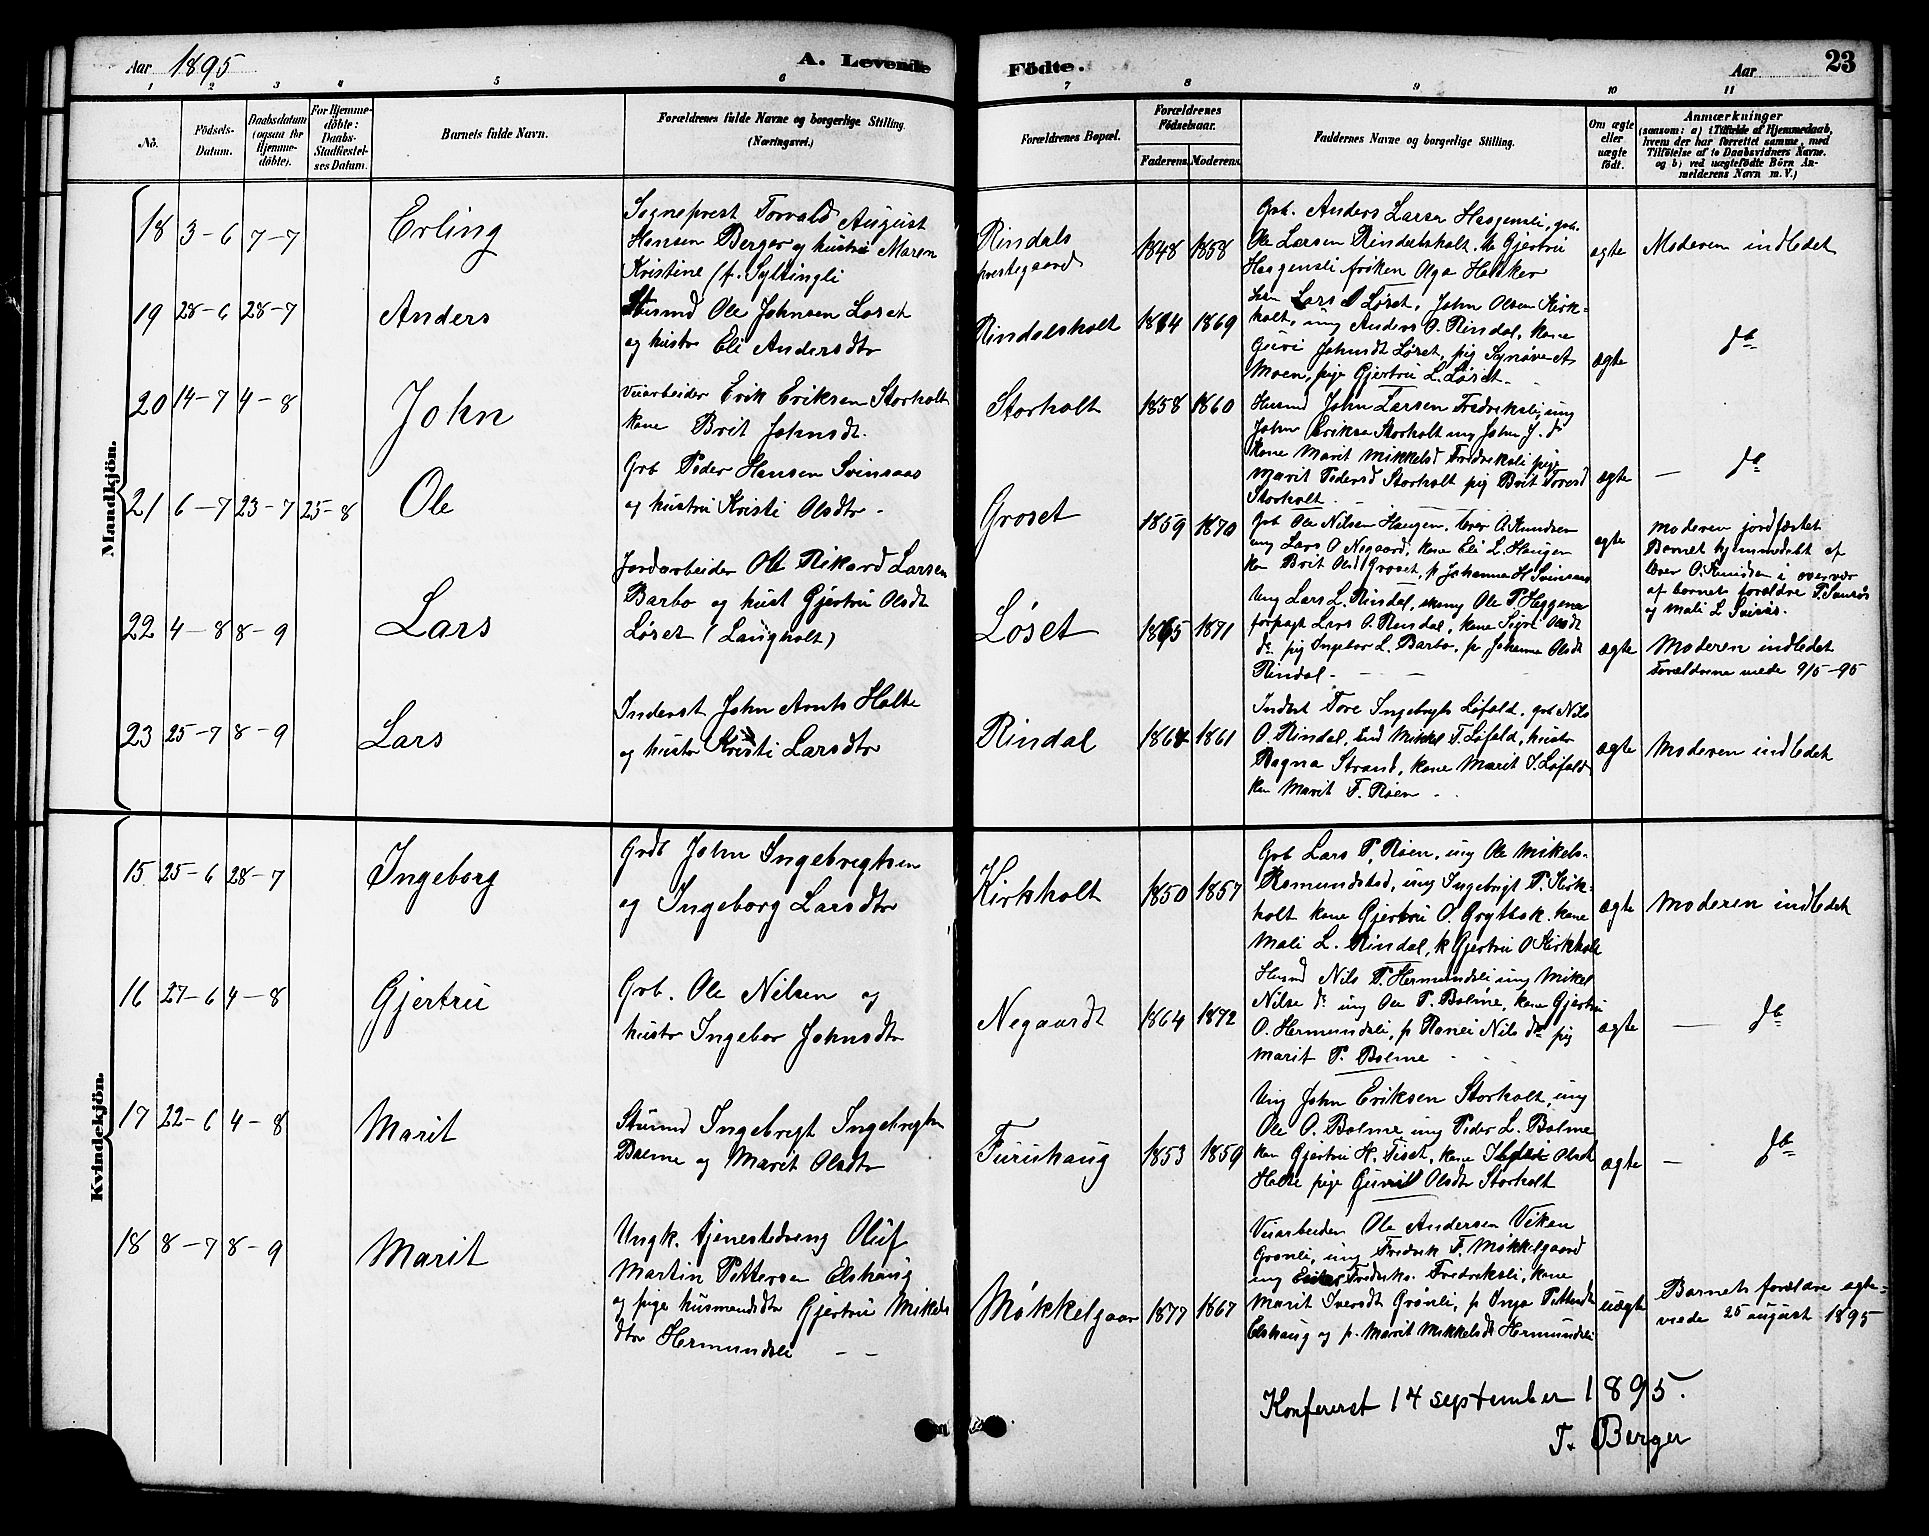 Aar 1895
A. Levende Födte.
Aar
23
1 2 3 4 5 6 7 8 9 10 11
No.
Födsels-Datum.
Daabsdatum (ogsaa for Hjemmedöbte).
For Hjemmedöbte: Daabs-Stadfæstelses Datum.
Barnets fulde Navn.
Forældrenes fulde Navne og borgerlige Stilling. (Næringsvei.)
Forældrenes Bopæl.
Forældrenes Födselsaar.
Faderens.
Moderens.
Faddernes Navne og borgerlige Stilling.
Om ægte eller uægte födt.
Anmærkninger
(saasom: a) i Tilfælde af Hjemmedaab,
hvem der har forrettet samme, med
Tilföielse af to Daabsvidners Navne.
og b) ved uægtefödte Börn An-
melderens Navn m. V.)
Mandkjön.
18 3-6 7-7
Erling
Sogneprest Torvald August
Hansen Berger og hustru Maren
Kristine (f. Syltingli
Rindals
prestegaard
1848 1858
Grb. Anders Larsen Haagensli, grb.
Ole Larsen Rindalsholt. k Gjertru
Haagensli frøken Olga Halker
ægte
Moderen indledet
19 28-6 28-7
Anders
Ole Johnsen Løset
og hustr Eli Andersdtr
Rindalsholt
1864 1869
Lars O Løset, John Olsen Kirk-
holt, ung Anders O. Rindal, kone
Guri Johnsdt Løset, pig Synøve A
Moen, pige Gjertru L. Løset.
ægte
do
20 14-7 4-8
John
Veiarbeider Erik Eriksen Storholt
kone Brit Johnsdt.
Storholt
1858 1860
Husmd John Larsen Fredriksli, ung
John Eriksen Storholt ung John J. do
kone Marit Mikkelsd Fredriksli pige
Marit Pedersd Storholt pig Brit Toresd
Storholt
ægte
— do
21 6-7 23-7 25-8
Ole
Grb Peder Hansen Svinsaas
og hustru Kristi Olsdtr -
Groset
1859 1870
Grb Ole Nilsen Haugen, lærer O. Knudsen
ung Lars O Negaard, kone Eli L. Haugen
kon Brit Olsd Groset, p Johanna H Svinsaas
ægte
Moderen jordfæstet
Barnet hjemmedøbt af
lærer O. Knudsen i overvær
af barnets forældre P. Svinsås
og Mali L Svinås.
22 4-8 8-9
Lars
Jordarbeider Ole Rikard Larsen
Barbo og hust Gjertru Olsdt
Løset (Langholt)
Løset
1865 1871
Ung Lars L. Rindal, ung Ole P. Heggem
forpagt Lars O. Rindal, kone Sigri Olsdt
do pig Ingebor L. Barbo, p Johanna Olsdt
Rindal
ægte
Moderen indledet
Forældrene viede 9/5-95
23 25-7 8-9
Lars
Inderst John Arnts Halte
og hustr Kristi Larsdtr
Rindal
1864 1861
Inderst Tore Ingebrigts Løfald, grb Nils
O. Rindal, ind Mikkel T. Løfald, hustr
Ragna Strand, kone Marit I. Løfald
kon Marit F. Røen
ægte
Moderen indledet
Kvindekjön.
15 25-6 28-7
Ingeborg
Grdb John Ingebrigtsen
og Ingeborg Larsdtr
Kirkholt
1850 1857
Grb Lars P. Røen, ung Ole Mikels-
Romundstad, ung Ingebrigt P. Kirk-
holt kone Gjertru O. Gryttbak. kone
Mali L. Rindal, k Gjertru O Kirkholt
ægte
Moderen indledet
16 27-6 4-8
Gjertru
Grb. Ole Nilsen og
hustr Ingebor Johnsdtr
Negaardt
1864 1872
Husmd Nils P. Hermundsli, ung Mikel
Nilse do ung Ole P. Bolme, kone Gjertru
O. Hermundsli, p Ranei Nils do pig
Marit P. Bolme
ægte
— do
17 22-6 4-8
Marit
Ingebrigt Ingebrigtsn
Bolme og Marit Olsdtr
Furuhaug
1853 1859
Ung John Eriksen Storholt, ung
Ole O. Bolme ung Peder L. Bolme
kon Gjertru H. Tiset, kone Olsdt
Halte pige Gunil Olsdtr Storholt
ægte
— do
18 8-7 8-9
Marit
Ungk. tjenestedreng Oluf
Martin Pettersen Elshaug
og pige husmandsdtr Gjertru Mikels
dtr Hermundsli
Møkkelgaar
1877 1867
Veiarbeider Ole Andersen Viken
Grønli, ung Fredrik F. Møkkelgaard
ung Fredriks. Fredriksli, kone
Marit Iversdt Grønli, p Inga Pettersdt
Elshaug og p. Marit Mikkelsdt Hermundsli
uægte
Barnets forældre ægte-
viede 25 august 1895
Konfereret 14 september 1895.
T. Berger